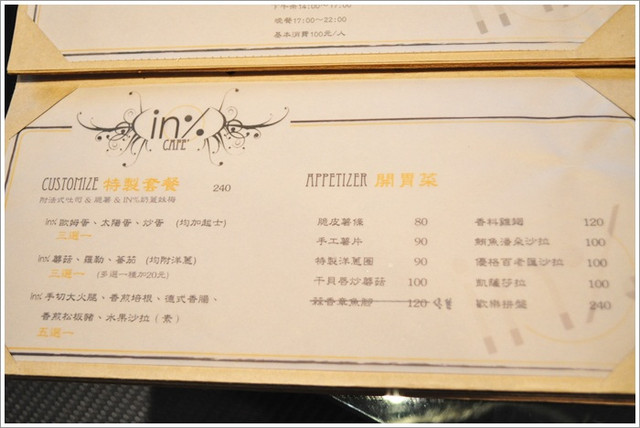 下午茶14:00～17:00
晚餐17:00～22:00
基本消費100元/人
in%
CAFE'
CUSTOMIZE 特製套餐 240
附法式吐司 & 脆薯 & IN%奶蓋
in% 歐姆蛋、太陽蛋、炒蛋 (均加起士)
三選一
in% 蘑菇、羅勒、蕃茄 (均附洋蔥)
三選一 (多選一樣加20元)
in% 手切大火腿、香煎培根、德式香腸、
香煎松板豬、水果沙拉(素)
五選一
APPETIZER 開胃菜
脆皮薯條 80
手工薯片 90
特製洋蔥圈 90
干貝唇炒蘑菇 100
香章魚 120
香料雞翅 120
鮪魚沙拉 100
優格百老匯沙拉 100
凱薩莎拉 100
歡樂拼盤 240